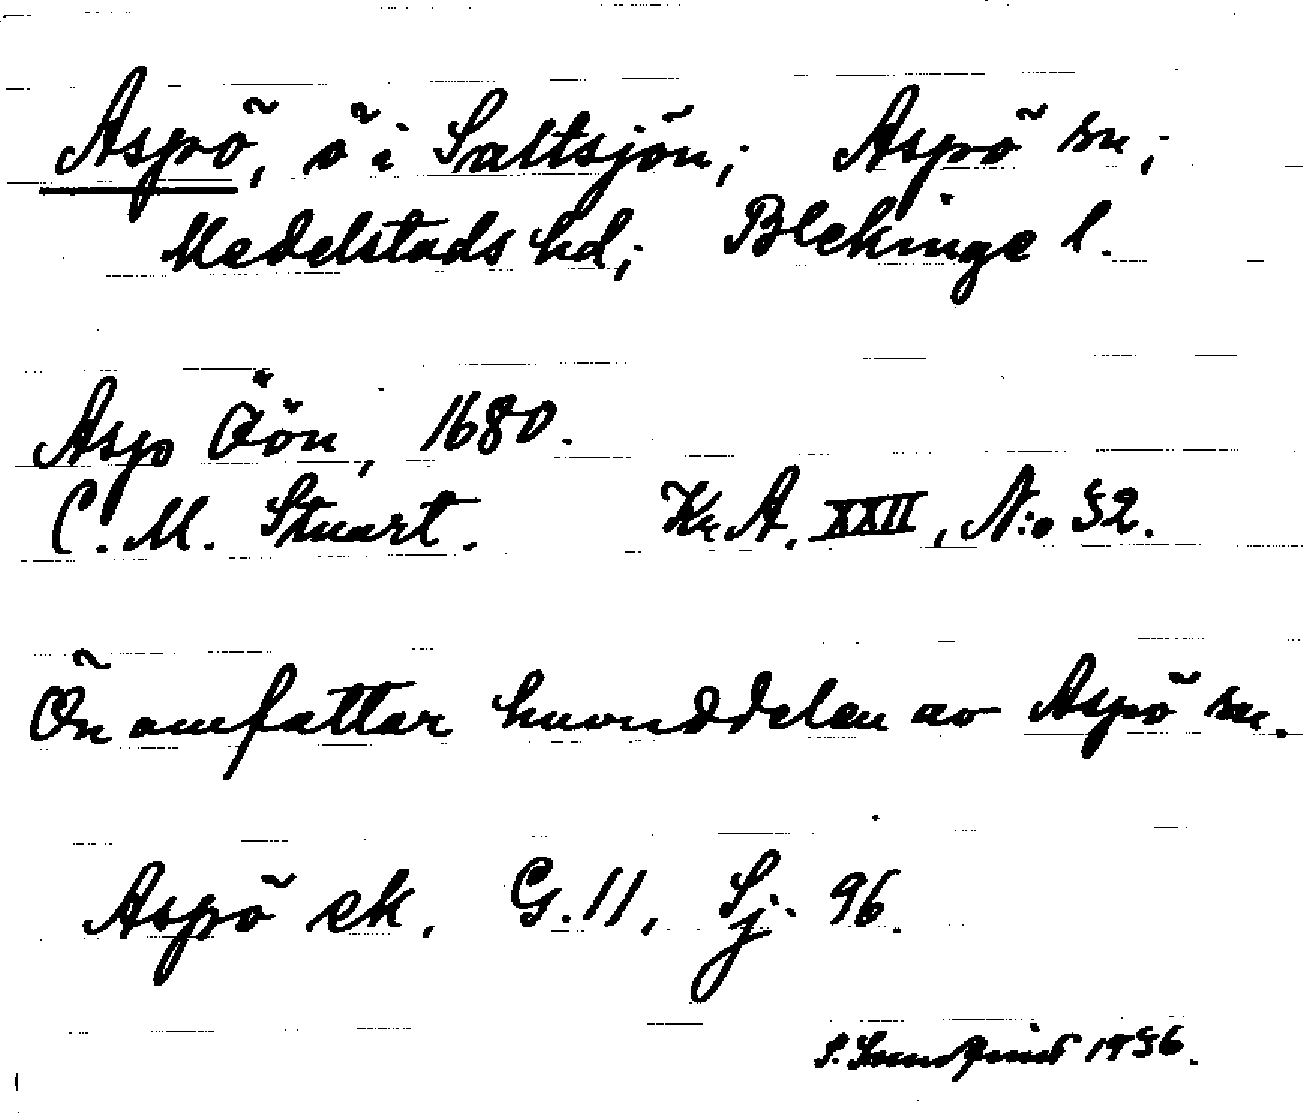 Aspö, ö i Saltsjön; Aspö sn;
Medelstads hd; Blekinge l.
Asp Öön, 1680.
C. M. Stuart. Kr. A. XXII, N:o 52.
Ön omfattar huvuddelen av Aspö sn.
Aspö ek. G. 11, Sj. 96.
1956.